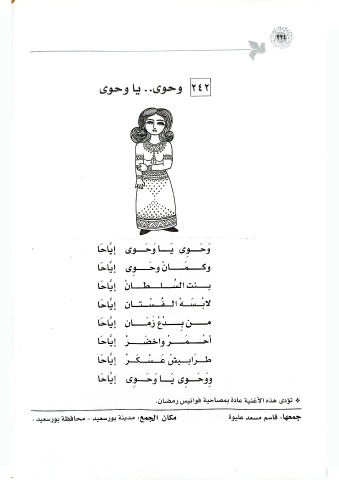 ٣٢٤
٢٤٢ وحوى.. يا وحوى
وَحَوِى يَـا وَحَـوِى إيَّاحَا
وكـمَـانْ وحَـوِى إيَّاحَا
بـنـت السُـلـطـان إيَّاحَا
لابْـسَـهْ الـفُـسْـتـان إيَّاحَا
مـن بِـدْعْ زَمَـان إيَّاحَا
أحْـمَـرْ واخضَـرْ إيَّاحَا
طـرابـيـشْ عَـسْـكَـرْ إيَّاحَا
ووَحَوِى يَـا وَحَـوِى إيَّاحَا
* تؤدى هذه الأغنية عادة بمصاحبة فوانيس رمضان.
جمعها: قاسم مسعد عليوة مكان الجمع: مدينة بورسعيد - محافظة بورسعيد .